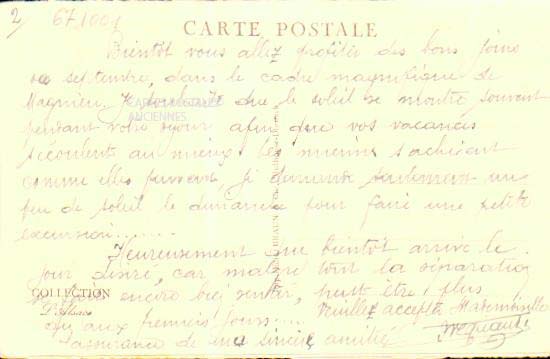 2/ 67/1001
CARTE POSTALE
Bientôt vous allez profiter des bons jours
de septembre, dans le cadre magnifique de
Magnieu. Je souhaite que le soleil se montre souvent
CARTES POSTALES
ANCIENNES
pendant votre séjour afin que vos vacances
s'écoulent au mieux. Les miennes s'achèvent
comme elles peuvent, je demande seulement un
peu de soleil le dimanche pour faire une petite
excursion.......
Heureusement que bientôt arrive le
jour désiré, car malgré tout la séparation
COLLECTION
encore bien sentir, peut être plus
D'Alsace
qu'aux premiers jours....
Veuillez accepter Mademoiselle
assurance de ma sincère amitié